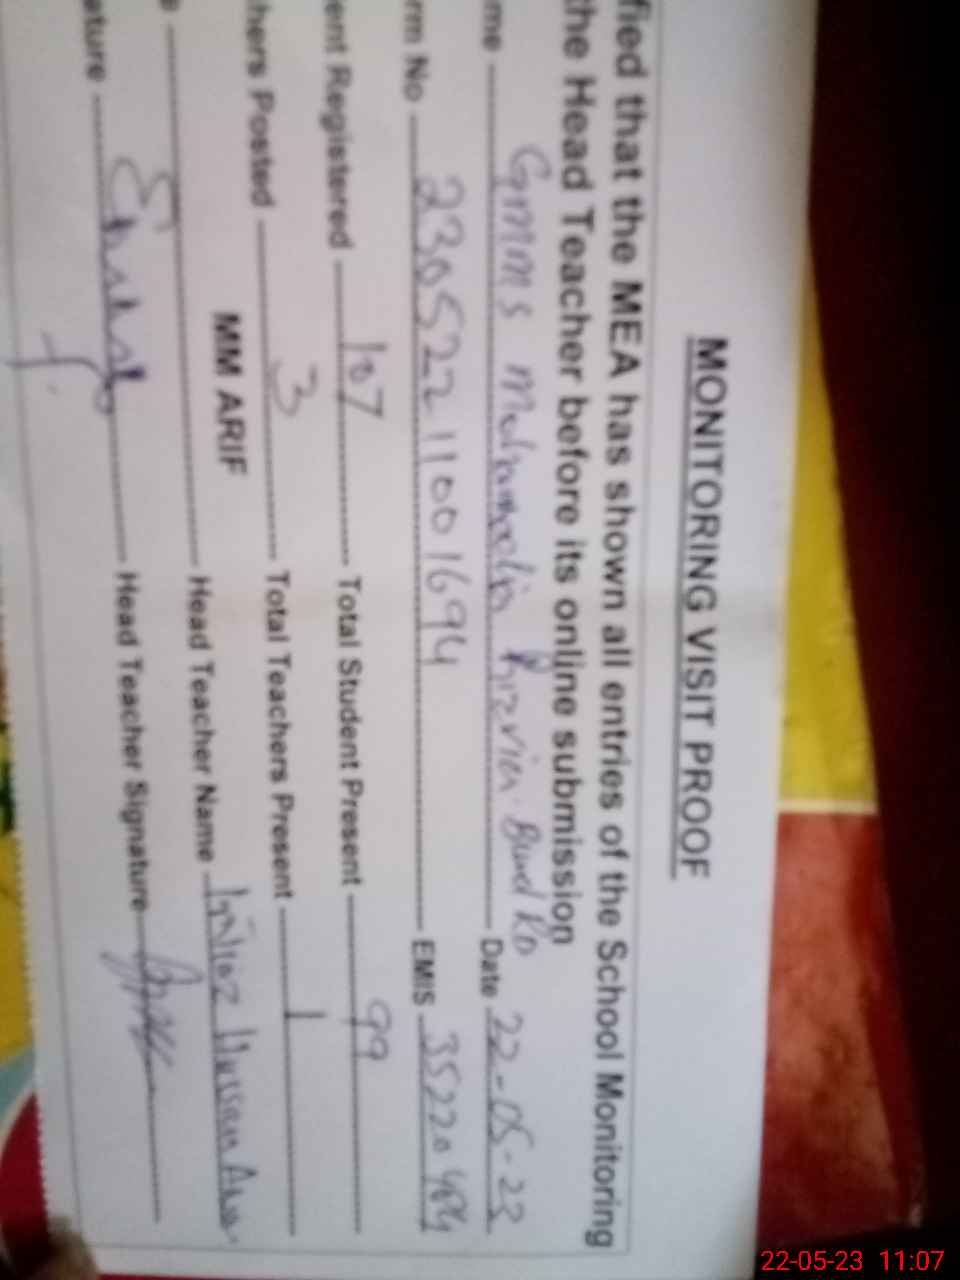 MONITORING VISIT PROOF
fied that the MEA has shown all entries of the School Monitoring
the Head Teacher before its online submission
me GMMS Rizvia Bund Rd Date 22-05-23
rm No 2305221100 1694 EMIS 35220484
ent Registered 107 Total Student Present 99
hers Posted 3 Total Teachers Present 1
MM ARIF Head Teacher Name Hassan
ature Head Teacher Signature
22-05-23 11:07